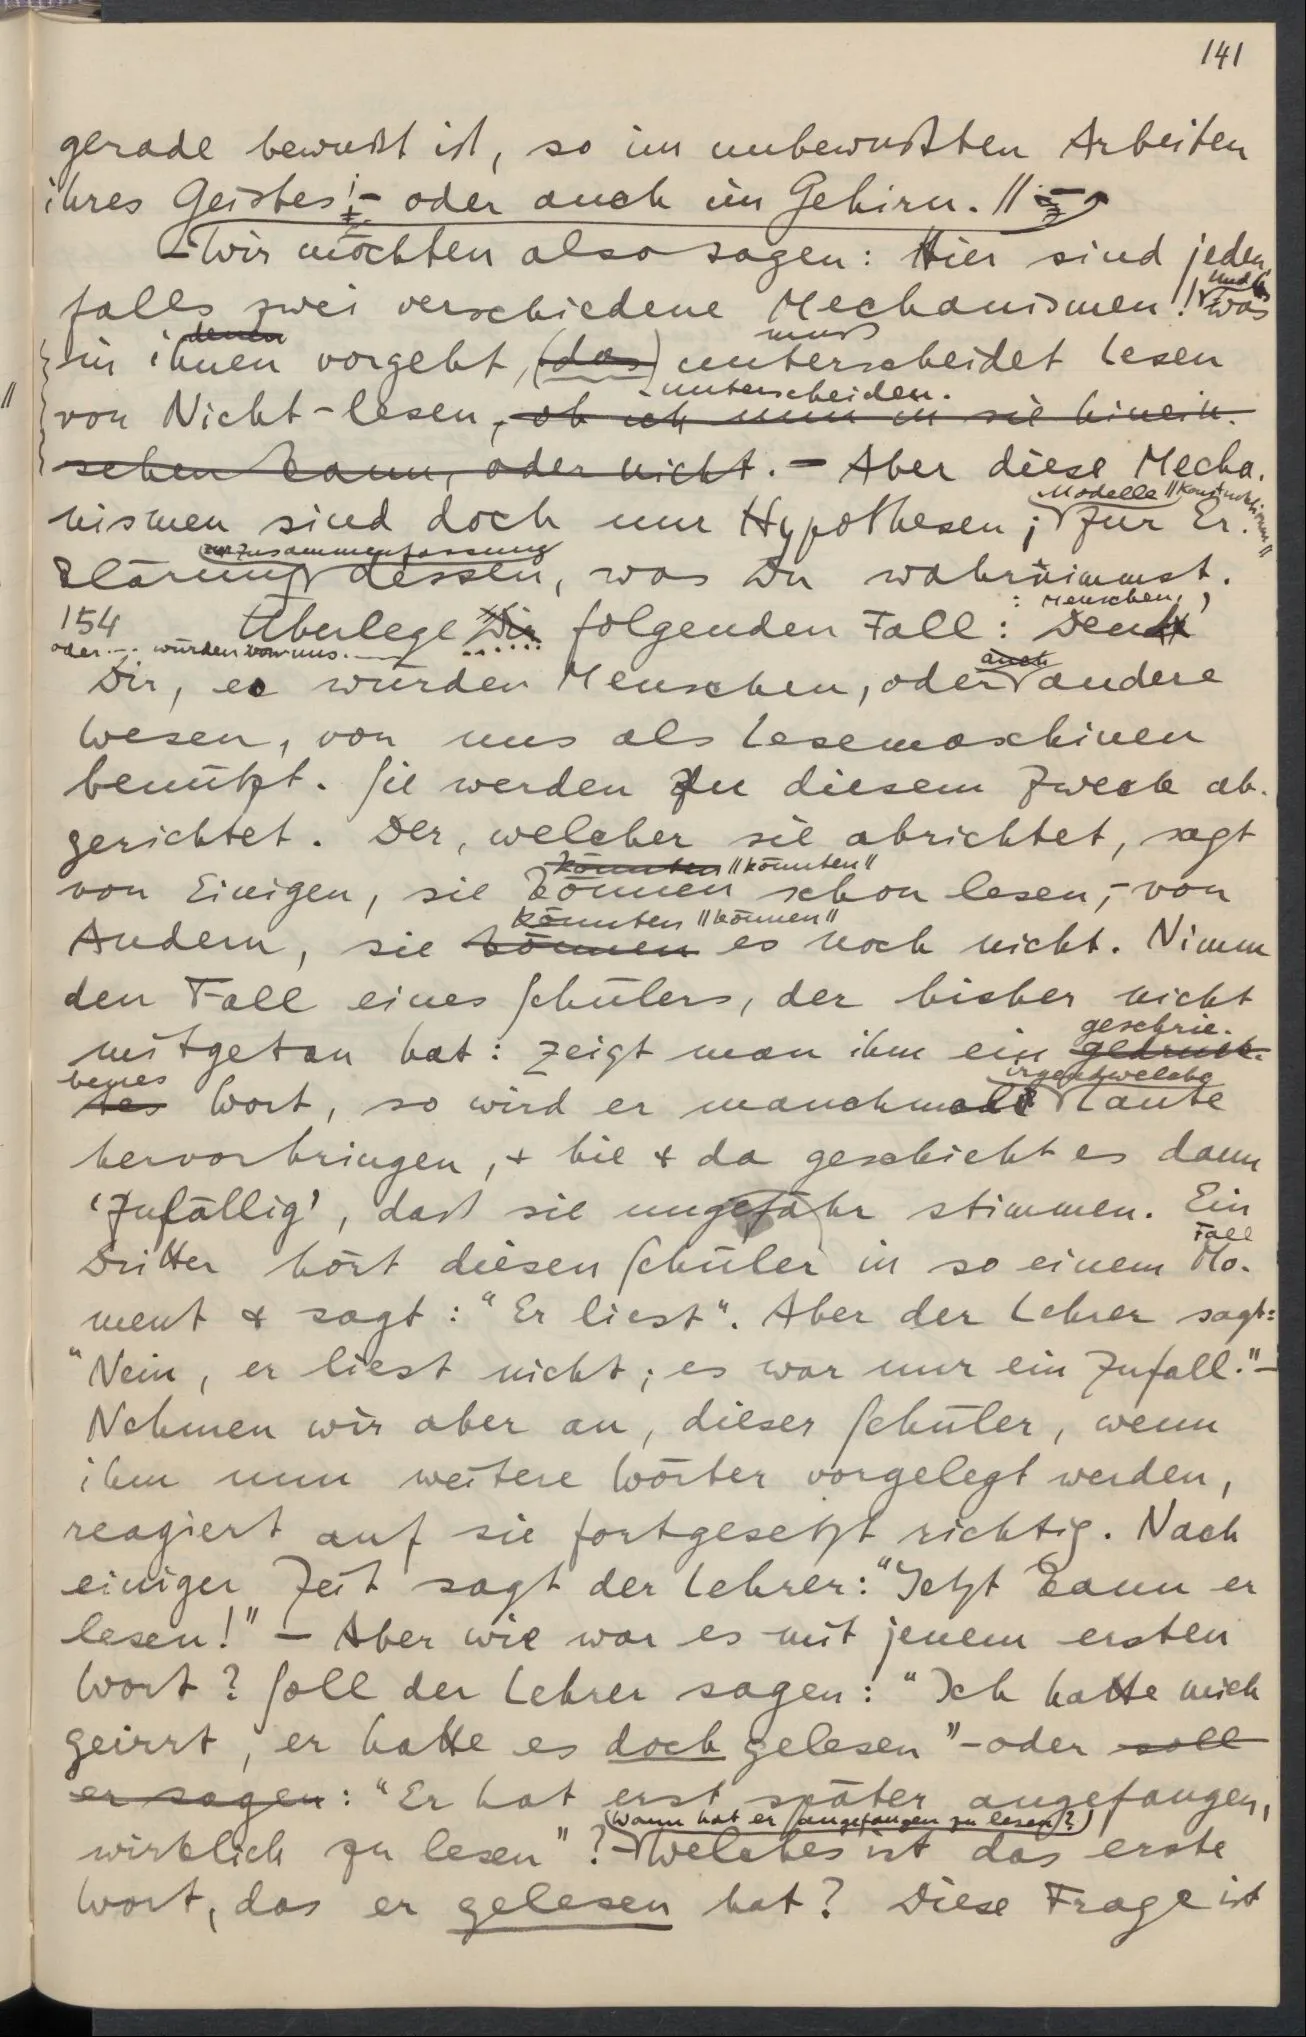 141
gerade bewußt ist, so im unbewußten Arbeiten
ihres Geistes! – oder auch im Gehirn. //
– Wir möchten also sagen: Hier sind jeden
falls zwei verschiedene Mechanismen! Und was
denen
muß
in ihnen vorgeht, (das) unterscheidet Lesen
unterscheiden.
// von Nicht-lesen, ob ich nun in sie hinein-
sehen kann, oder nicht. – Aber diese Mecha-
Modelle // Konstruktionen //
nismen sind doch nur Hypothesen; zur Er-
zur Zusammenfassung
klärung dessen, was Du wahrnimmst.
: Menschen,
154 Überlege Dir folgenden Fall: Denk
oder … würden von uns
auch
Dir, es würden Menschen, oder andere
Wesen, von uns als Lesemaschinen
benützt. Sie werden zu diesem Zweck ab-
gerichtet. Der, welcher sie abrichtet, sagt
könnten // könnten //
von Einigen, sie können schon lesen, – von
könnten // können //
Andern, sie können es noch nicht. Nimm
den Fall eines Schülers, der bisher nicht
geschrie-
mitgetan hat: zeigt man ihm ein gedruck-
benes
irgendwelche
tes Wort, so wird er manchmal Laute
hervorbringen, & hie & da geschieht es dann
'zufällig', daß sie ungefähr stimmen. Ein
Fall
Dritter hört diesen Schüler in so einem Mo-
ment & sagt: "Er liest". Aber der Lehrer sagt:
"Nein, er liest nicht; es war nur ein Zufall." –
Nehmen wir aber an, dieser Schüler, wenn
ihm nun weitere Wörter vorgelegt werden,
reagiert auf sie fortgesetzt richtig. Nach
einiger Zeit sagt der Lehrer: "Jetzt kann er
lesen!" – Aber wie war es mit jenem ersten
Wort? Soll der Lehrer sagen: "Ich hatte mich
geirrt, er hatte es doch gelesen" – oder soll
er sagen: "Er hat erst später angefangen,
(Wann hat er angefangen zu lesen?)
wirklich zu lesen"? – Welches ist das erste
Wort, das er gelesen hat? Diese Frage ist